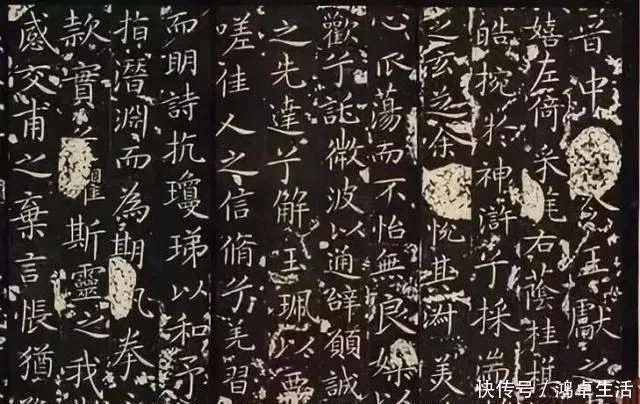 晉中令王獻之
嬉左倚采旄右蔭桂旗
皓捥於神滸兮採湍
之玄芝余悅其淑美
心蕩而不怡無良媒以
歡兮託微波以通辭願誠
之先達兮解玉珮以要
嗟佳人之信脩兮羌習
而明詩抗瓊珶以和予
指潛淵而為期執拳
款實懼斯靈之我
感交甫之棄言悵猶
快传号/鸿卓生活